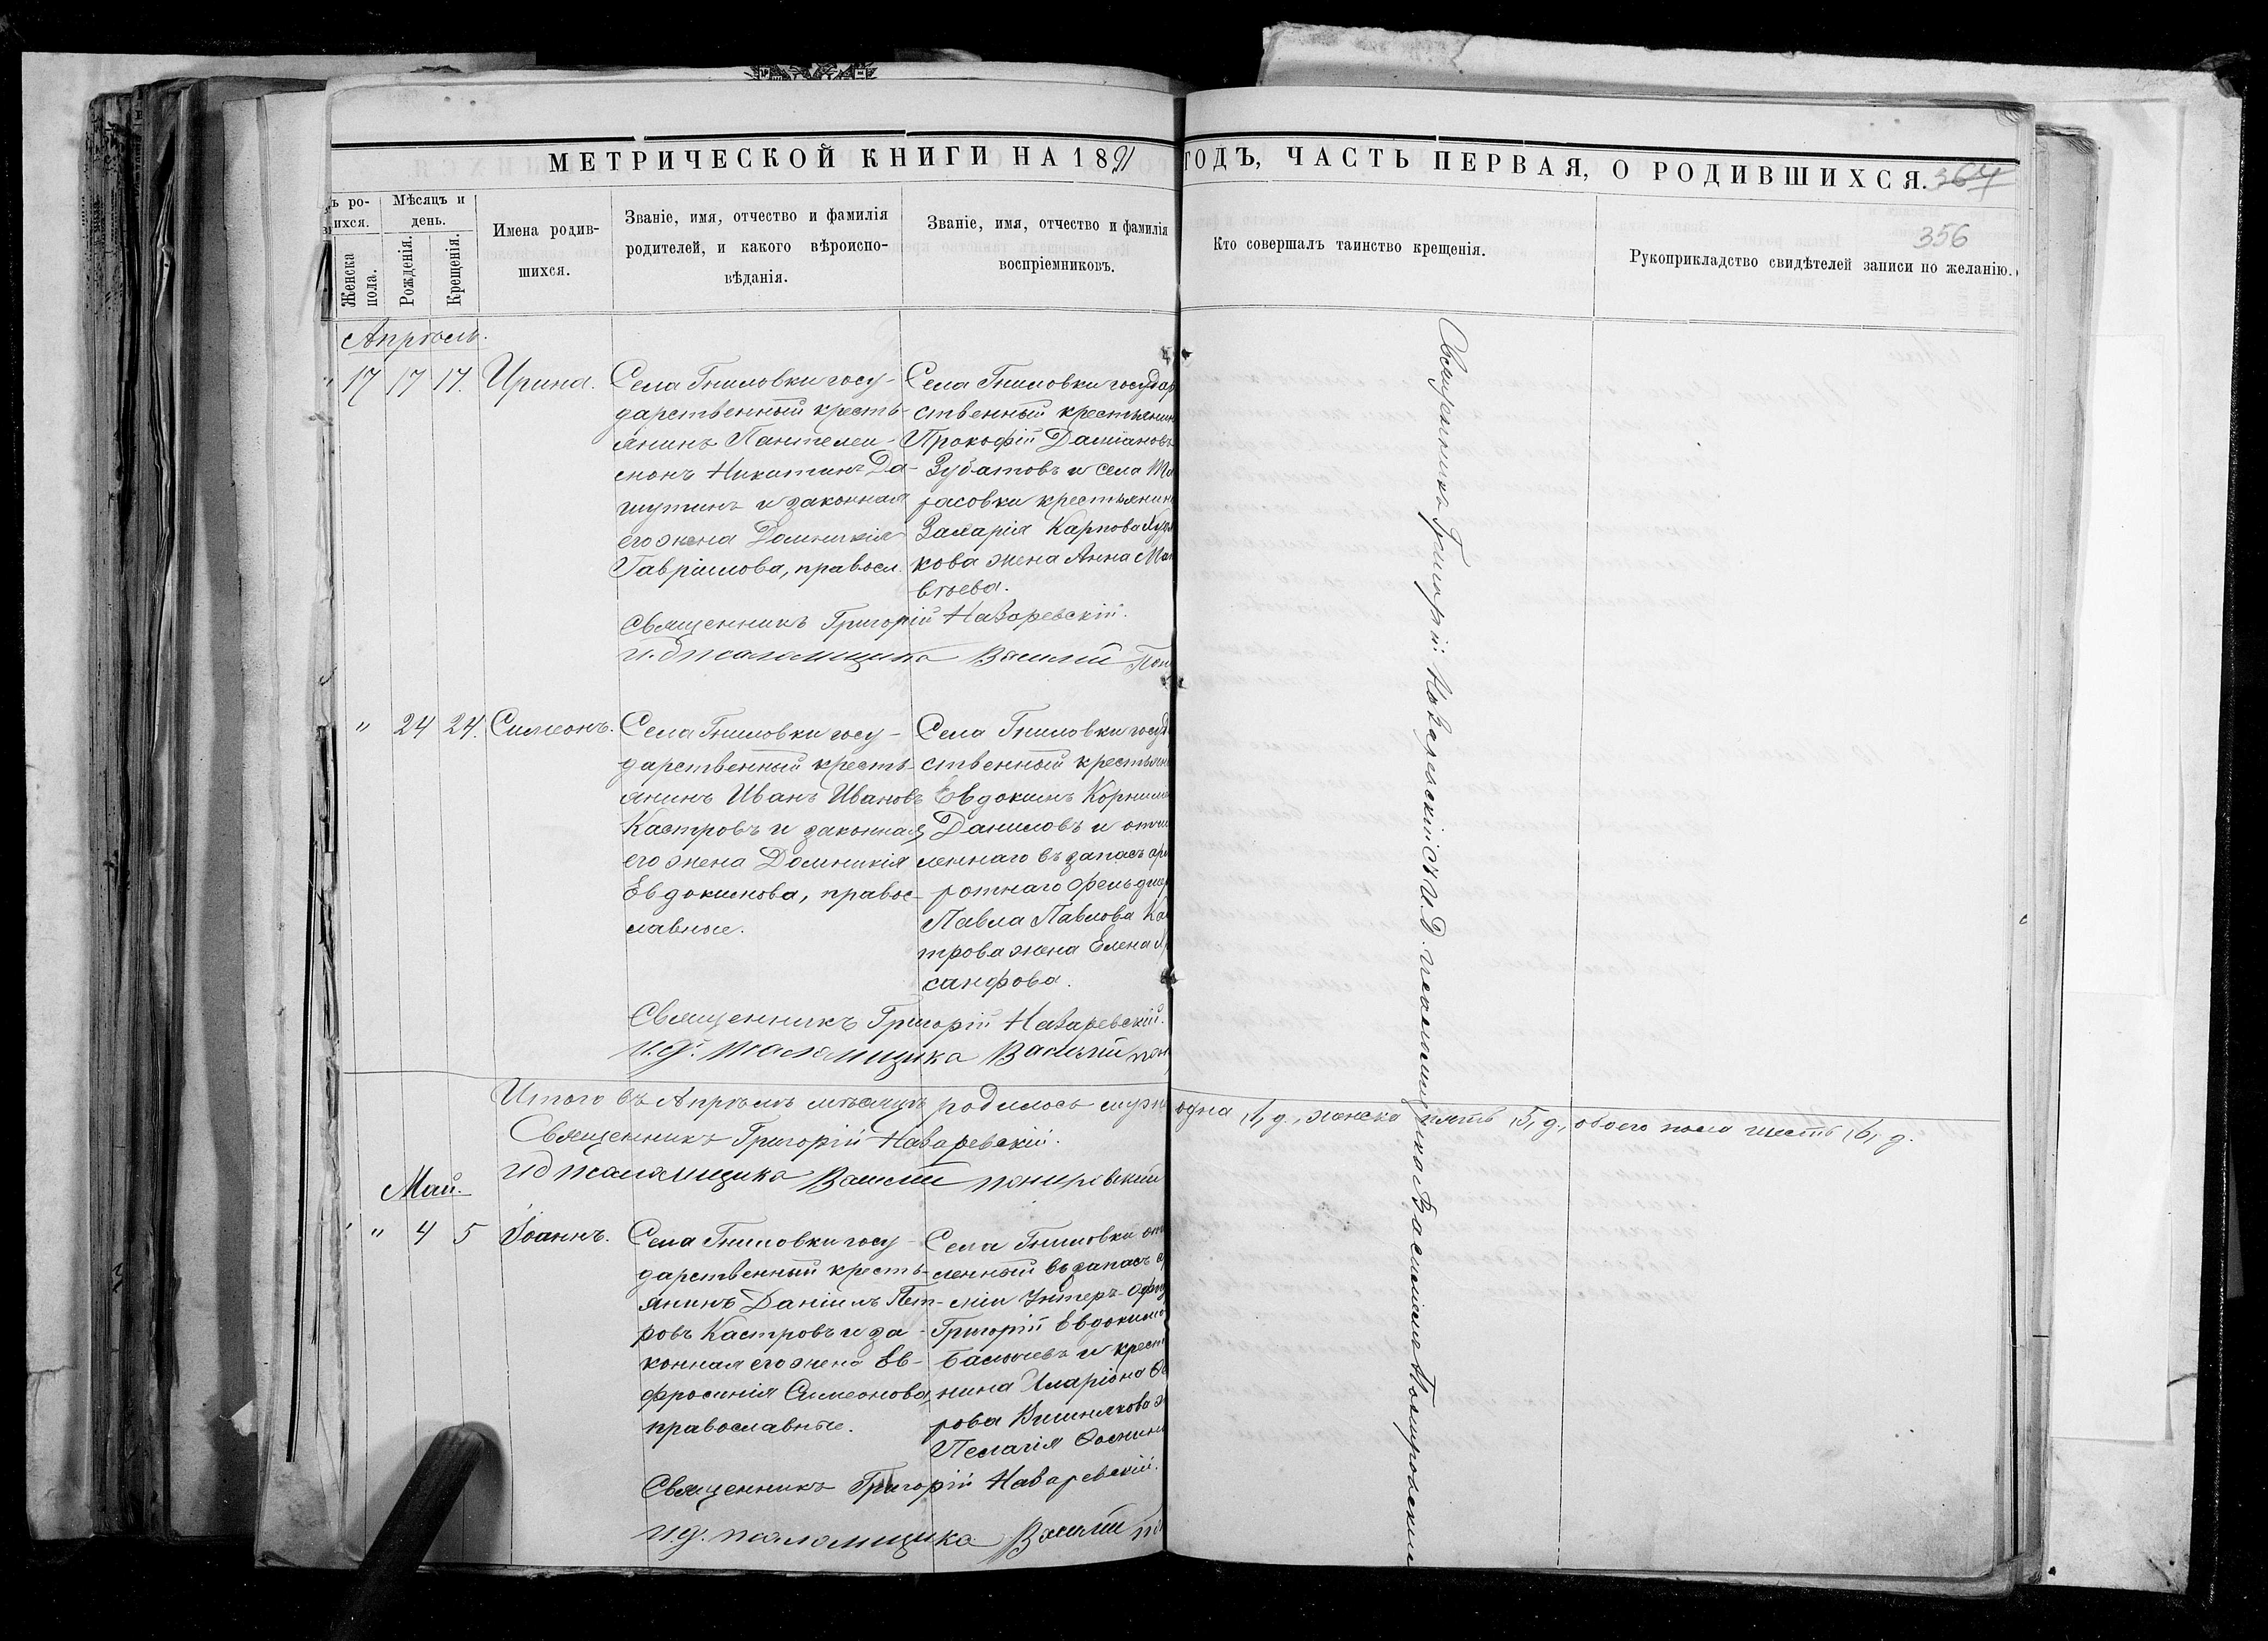 МЕТРИЧЕСКОЙ КНИГИ НА 1891
ГОДЪ, ЧАСТЬ ПЕРВАЯ, О РОДИВШИХСЯ.
364
356
ъ ро-
ихся.
Женска
пола.
Мѣсяцъ и
день.
Рожденія.
Крещенія.
Имена родив-
шихся.
Званіе, имя, отчество и фамилія
родителей, и какого вѣроиспо-
вѣданія.
Званіе, имя, отчество и фамилія
воспріемниковъ.
Кто совершалъ таинство крещенія.
Рукоприкладство свидѣтелей записи по желанію.
Апрѣль.
17 17 17. Ирина.
Села Гниловки госу-
дарственный кресть-
янинъ Пантелеи-
монъ Никитинъ Да-
шутинъ и законная
его жена Домникія
Гавріилова, правосл.
Села Гниловки государ
ственный крестьянин
Прокофій Даміановъ
Зубатовъ и села Та
расовки крестьянин
Захарія Карпова
кова жена Анна Мат
вѣева.
Священникъ Григорій Назаревскій.
и.д. псаломщика Василій По
" 24 24. Симеонъ.
Села Гниловки госу-
дарственный кресть-
янинъ Иванъ Ивановъ
Кастровъ и законная
его жена Домникія
Евдокимова, правос-
лавные.
Села Гниловки госуд
ственный крестьян
Евдокимъ Корнил
Даниловъ и отчи
леннаго въ запасъ ар
ротнаго фельдше
Павла Павлова Ка
трова жена Елена
санфова.
Священникъ Григорій Назаревскій.
и.д. псаломщика Василій по
Итого въ Апрѣлѣ мѣсяцѣ родилось муж
одна 1, д., женска пять 5, д., обоего пола шесть 6, д.
Священникъ Григорій Назаревскій.
ид псаломщика Василій Помировский
Май.
" 4 5 Іоаннъ.
Села Гниловки госу-
дарственный кресть-
янинъ Даніилъ Пет-
ровъ Кастровъ и за-
конная его жена Ев-
фросинія Симеонова,
православные.
Села Гниловки от
ленный въ запасъ
міи Унтеръ-Офи
Григорій Евдокимо
и крест
нина Иларіона
рова Вишнякова
Пелагія
Священникъ Григорій Назаревскій.
и.д. псаломщика Василій по
Священникъ Григорій Назаревскій съ И.Д. псаломщика Василіемъ Помировскимъ